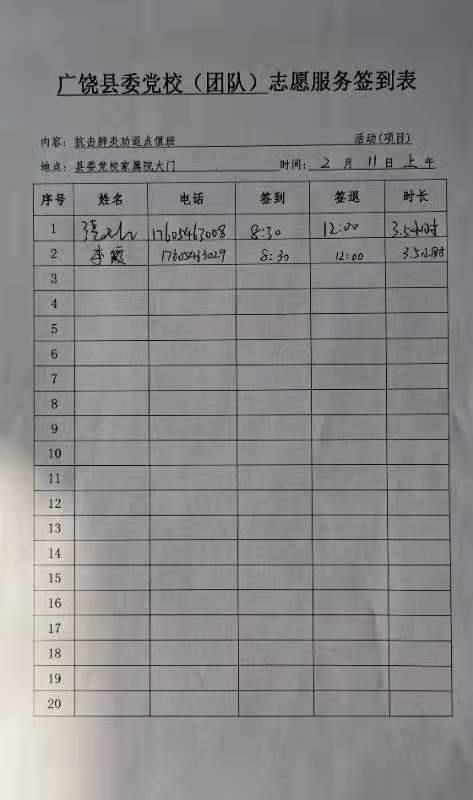 广饶县委党校（团队）志愿服务签到表
内容：抗击肺炎劝返点值班 活动(项目)
地点：县委党校家属院大门 时间：2月11日上午
序号 姓名 电话 签到 签退 时长
1 17605463008 8:30 12:00 3.5小时
2 李霞 17605463029 8:30 12:00 3.5小时
3
4
5
6
7
8
9
10
11
12
13
14
15
16
17
18
19
20